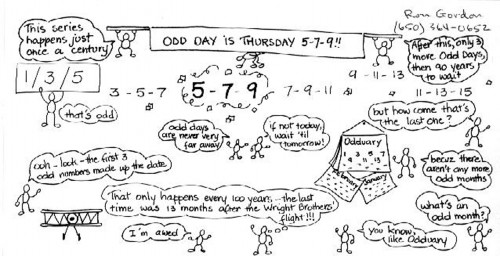 Ron Gordon
(650) 364-0652
This series
happens just
once a century
ODD DAY IS THURSDAY 5-7-9!!
After this, only 3
more Odd Days,
then 90 years
to wait
1/3/5
3-5-7
5-7-9
7-9-11
9-11-13
11-13-15
that's odd
odd days
are never very
far away
if not today,
wait 'til
tomorrow!
but how come that's
the last one?
Odduary
1 3 5 7
9 11 13
February
January
ooh-look-the first 3
odd numbers made up the date
becuz there
aren't any more
odd months
That only happens every 100 years - the last
time was 13 months after the Wright Brothers'
flight!!!
what's an
odd month?
I'm awed
you know,
like Odduary